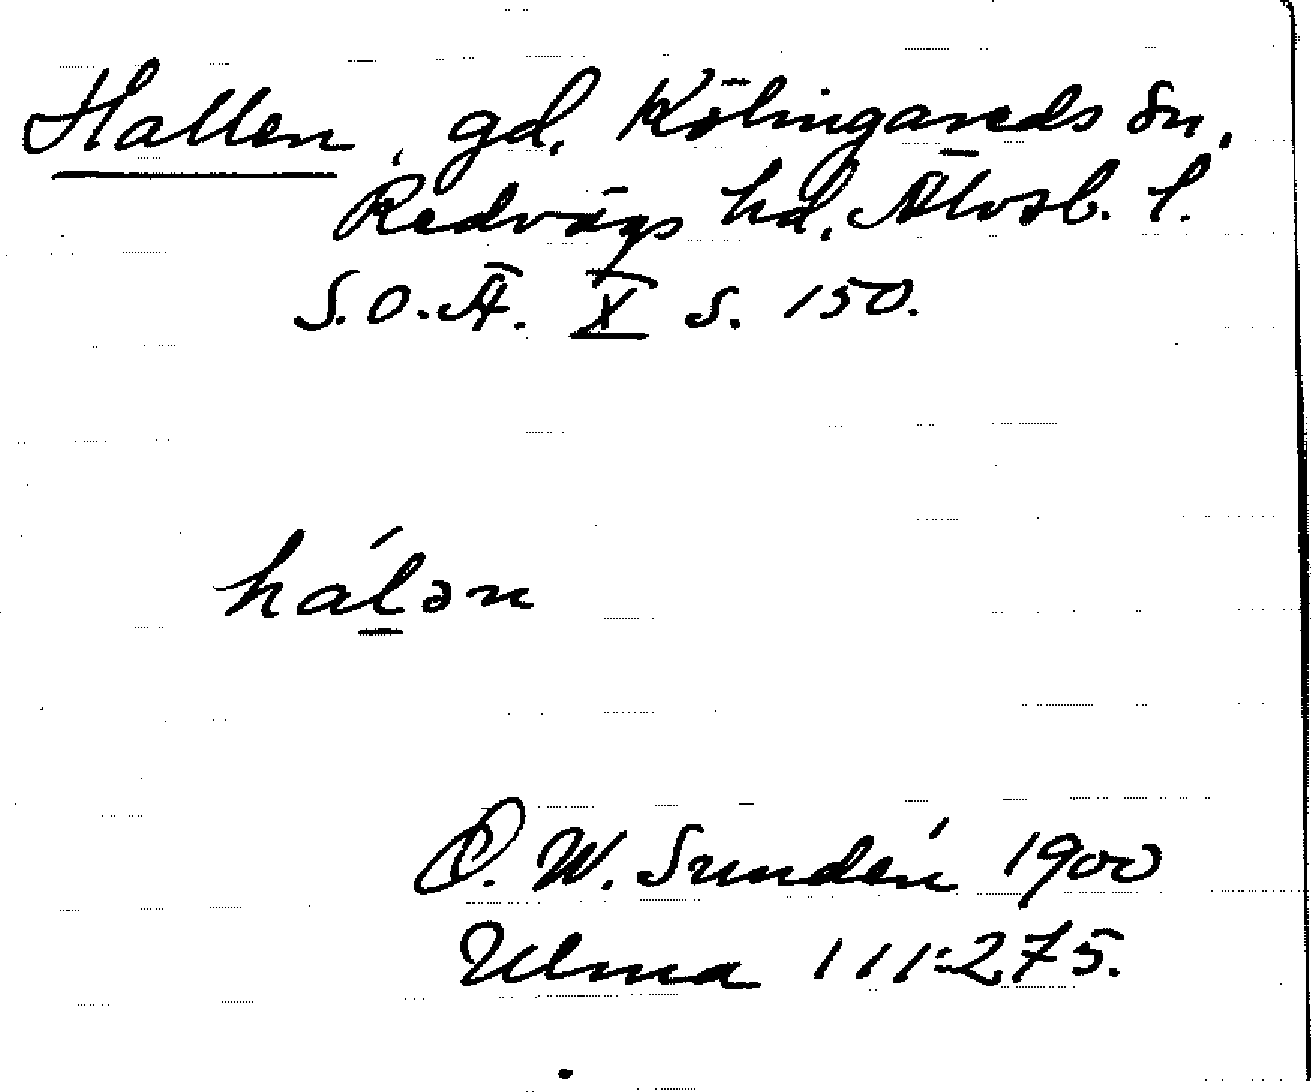 Hallen, gd, Kölingareds sn,
Redvägs hd, Älvsb. l.
S.O.Ä. X s. 150.
hálən
D. W. Sundén 1900
Ulma 111:275.